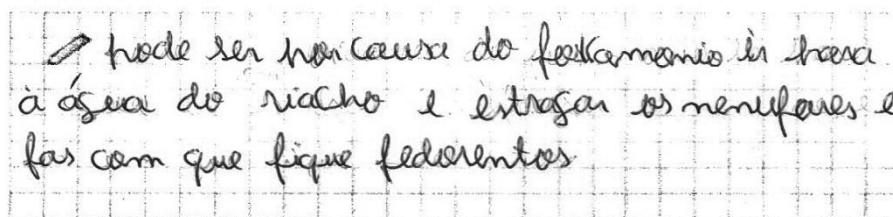 pode ser por causa do ir para
à água do riacho e estragar os nenufares e
fas com que fique fedorentos